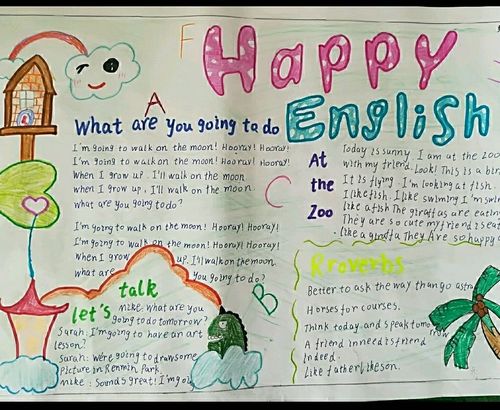 F
Happy
English
A
What are you going to do
I'm going to walk on the moon! Hooray! Hooray!
I'm going to walk on the moon! Hooray! Hooray!
When I grow up. I'll walk on the moon
when I grow up. I'll walk on the moon.
what are you going to do?
I'm going to walk on the moon! Hooray! Hooray!
I'm going to walk on the moon! Hooray! Hooray!
When I grow up. I'll walk on the moon.
what are you going to do?
C
B
At
the
Zoo
Today is sunny. I am at the zoo
with my friend. Look! This is a bir
It is flying. I'm looking at fish.
I like fish. I like swiming I'm swim
like a fish The giraffas are eatin
They are so cute my friend is eat
like a giraffa They Are so happy
let's talk
Mike: what are you
going to do tomorrow?
Sarah: I'm going to have an art
lesson?
Sarah: We're going to draw some
Picture in Renmin Park.
Mike: Sounds great! I'm goi
Rroverbs
Better to ask the way than go astr
Horses for courses.
Think today and speak tomorrow
A friend in need is friend
Indeed.
Like father like son.